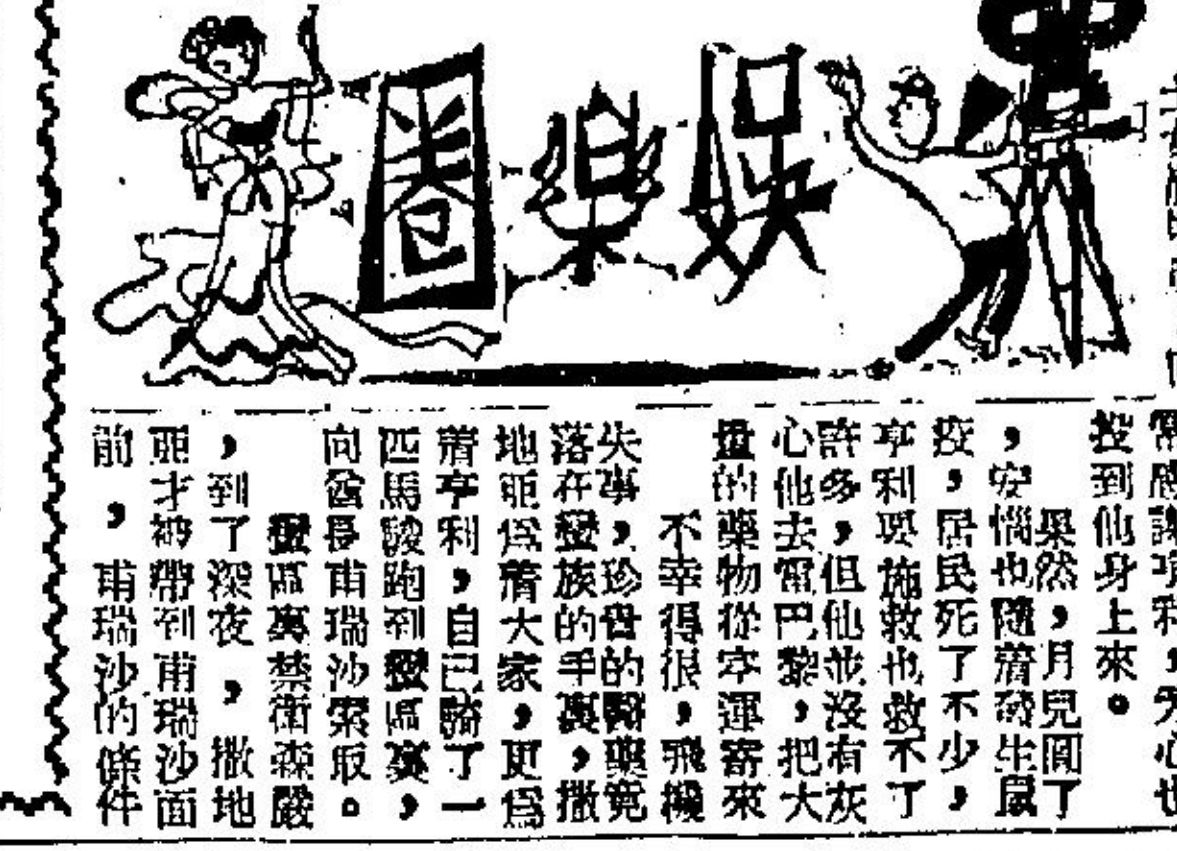 娛樂圈
常感謝利,芳心也
投到他身上來。
果然,月兒圓了
,安惱也隨着發生鼠
疫,居民死了不少,
亨利要施救也救不了
許多,但他並沒有灰
心他去電巴黎,把大
量的藥物從空運寄來
不幸得很,飛機
失事,珍世的醫藥竟
落在蠻族的手裏,撒
地爲着大家,更爲
着亨利,自己騎了一
匹馬駿跑到蠻區裏,
向酋長甫瑞沙索取。
蠻區裏禁衛森嚴
,到了深夜,撒地
亞才被帶到甫瑞沙面
前,甫瑞沙的條件